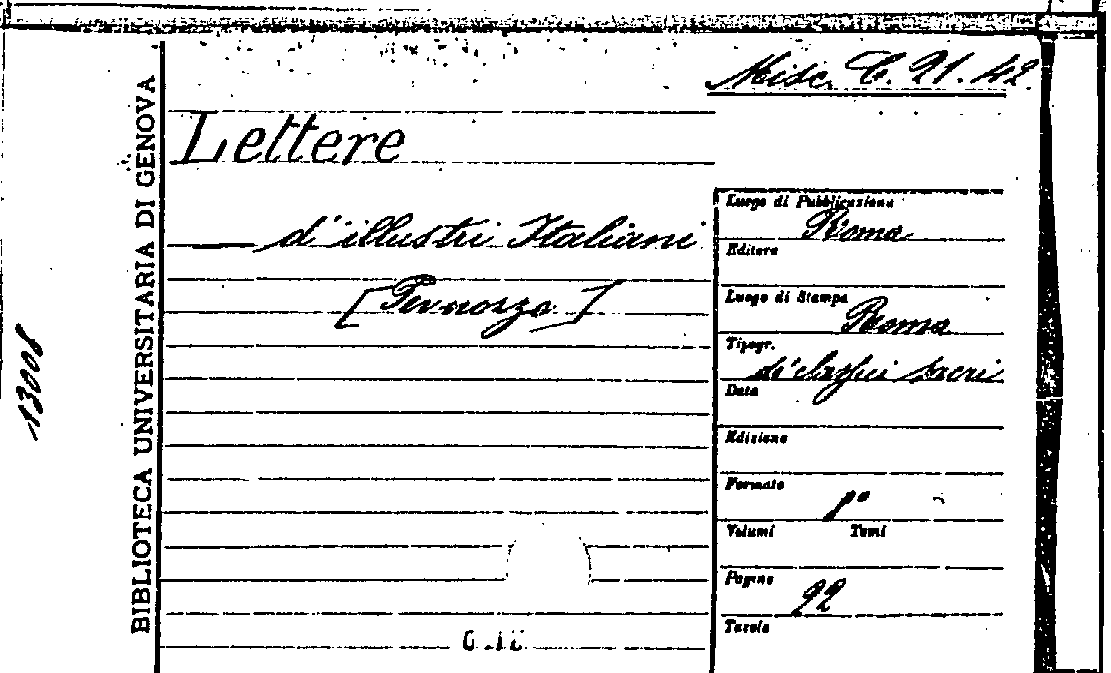 Misc. C. 21. 42.
BIBLIOTECA UNIVERSITARIA DI GENOVA
13006
Lettere
d'illustri Italiani
Luogo di Pubblicazione
Roma
Editore
Luogo di Stampa
Roma
Tipogr.
di classici sacri
Data
Edizione
Formato
Volumi Tomi
Pagine
22
Tavole